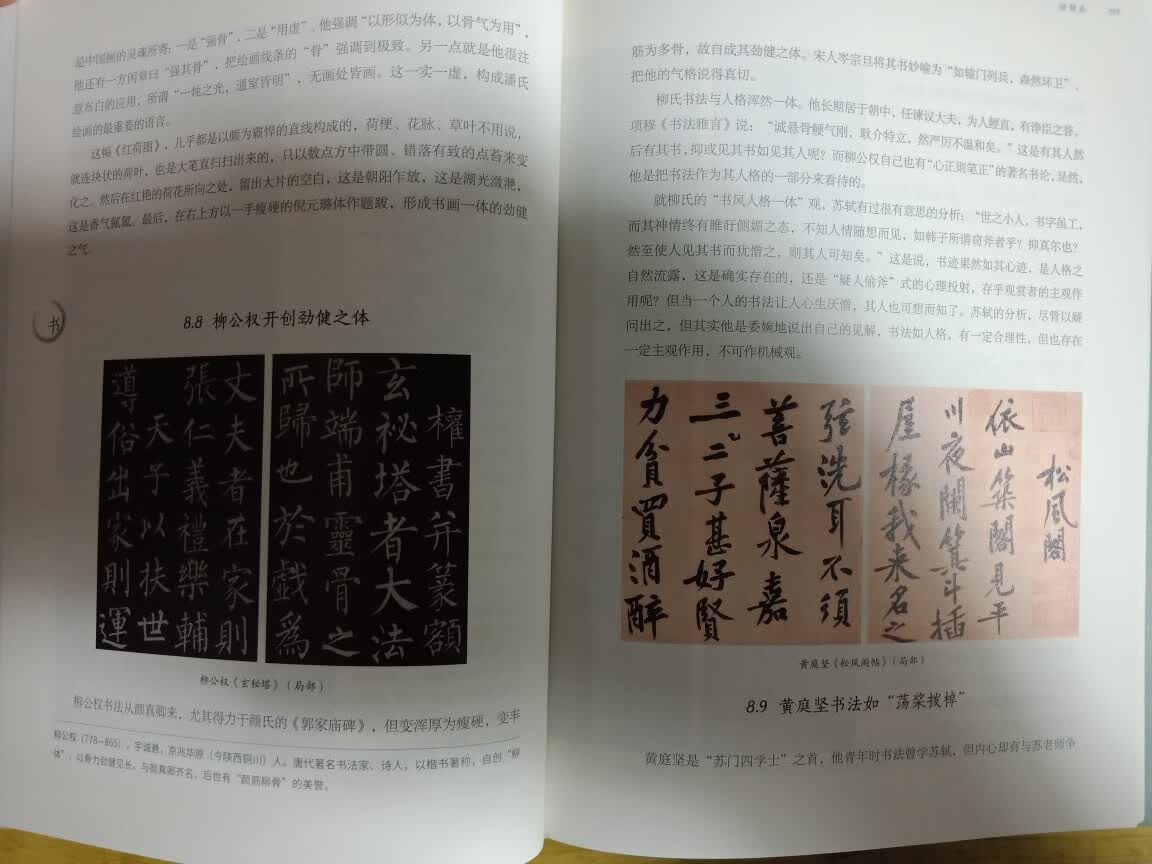 是中国画的灵魂所寄：一是“强骨”，二是“用虚”。他强调“以形似为体，以骨气为用”，
他还有一方闲章曰“强其骨”，把绘画线条的“骨”强调到极致。另一点就是他很注
意布白的应用，所谓“一烛之光，通室皆明”，无画处皆画。这一实一虚，构成潘氏
绘画的最重要的语言。
这幅《红荷图》，几乎都是以颇为霸悍的直线构成的，荷梗、花脉、草叶不用说，
就连块状的荷叶，也是大笔直扫扫出来的，只以数点方中带圆、错落有致的点苔来变
化之。然后在红艳的荷花所向之处，留出大片的空白，这是朝阳乍放，这是湖光潋滟，
这是香气氤氲。最后，在右上方以一手瘦硬的倪元璐体作题跋，形成书画一体的劲健
之气。
书
8.8 柳公权开创劲健之体
權書并篆額
玄祕塔者大法
師端甫靈骨之
所歸也於戲為
丈夫者在家則
張仁義禮樂輔
天子以扶世
導俗出家則運
柳公权《玄秘塔》（局部）
柳公权书法从颜真卿来，尤其得力于颜氏的《郭家庙碑》，但变浑厚为瘦硬，变丰
柳公权（778—865），字诚悬，京兆华原（今陕西铜川）人。唐代著名书法家、诗人，以楷书著称，自创“柳
体”，以骨力劲健见长，与颜真卿齐名，后也有“颜筋柳骨”的美誉。
筋为多骨，故自成其劲健之体。宋人岑宗旦将其书妙喻为“如辕门列兵，森然环卫”，
把他的气格说得真切。
柳氏书法与人格浑然一体。他长期居于朝中，任谏议大夫，为人鲠直，有诤臣之誉。
项穆《书法雅言》说：“诚悬骨鲠气刚，耿介特立，然严厉不温和矣。”这是有其人然
后有其书，抑或见其书如见其人呢？而柳公权自己也有“心正则笔正”的著名书论，显然，
他是把书法作为其人格的一部分来看待的。
就柳氏的“书风人格一体”观，苏轼有过很有意思的分析：“世之小人，书字虽工，
而其神情终有睢盱侧媚之态，不知人情随想而见，如韩子所谓窃斧者乎？抑真尔也？
然至使人见其书而犹憎之，则其人可知矣。”这是说，书迹果然如其心迹、是人格之
自然流露，这是确实存在的，还是“疑人偷斧”式的心理投射，存乎观赏者的主观作
用呢？但当一个人的书法让人心生厌憎，其人也可想而知了。苏轼的分析，尽管以疑
问出之，但其实他是委婉地说出自己的见解，书法如人格，有一定合理性，但也存在
一定主观作用，不可作机械观。
松風閣
依山築閣見平
川夜闌箕斗插
屋椽我来名之
弦洗耳不須
菩薩泉嘉
三二子甚好賢
力貧買酒醉
黄庭坚《松风阁帖》（局部）
8.9 黄庭坚书法如“荡桨拨棹”
黄庭坚是“苏门四学士”之首，他青年时书法曾学苏轼，但内心却有与苏老师争